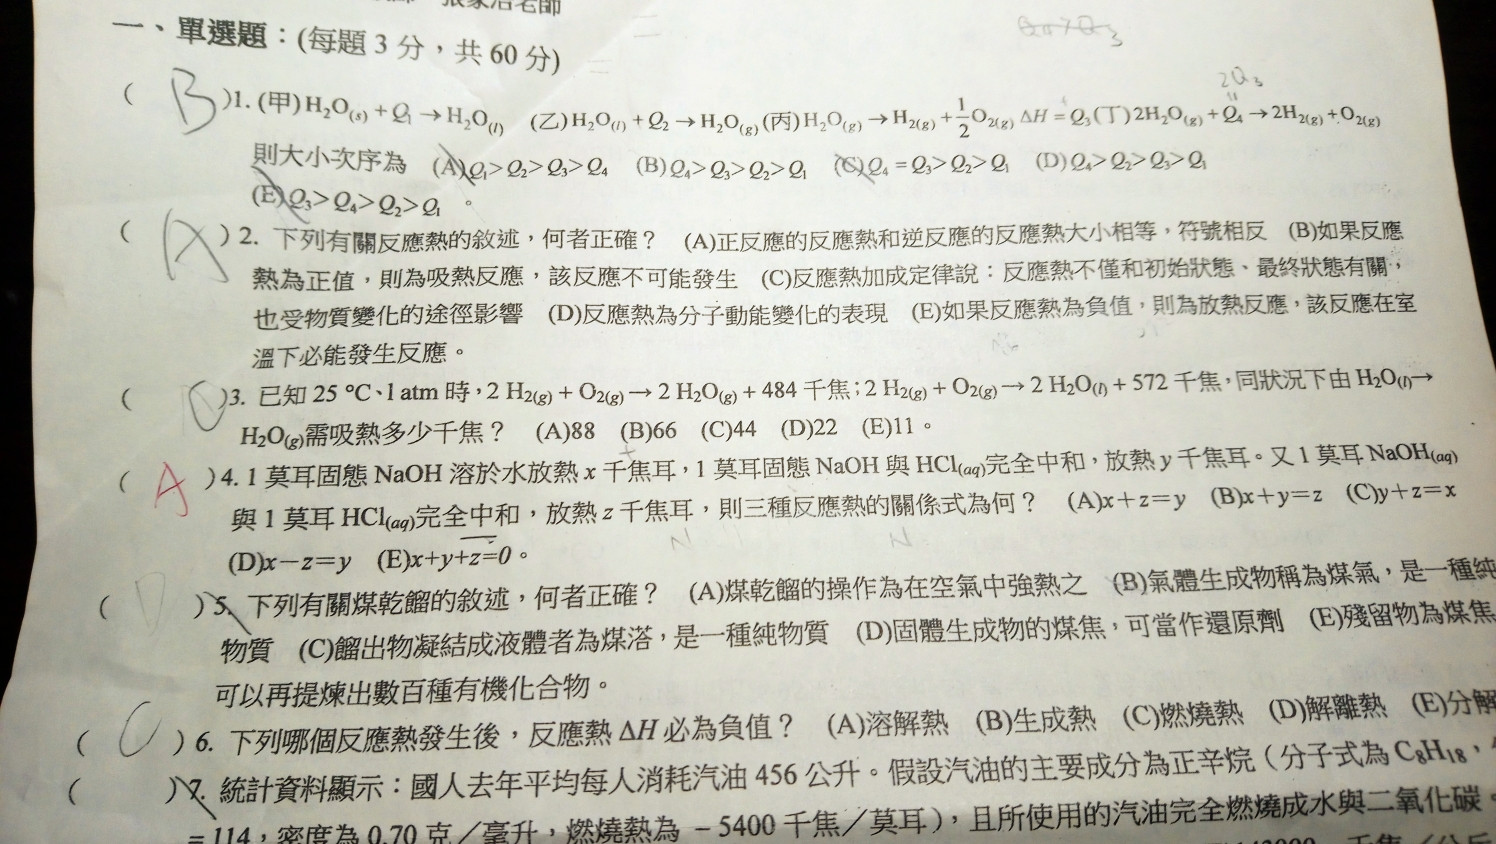 張家治老師
一、單選題：(每題 3 分，共 60 分)
2Q₃
( B )1. (甲)H₂O₍ₛ₎ + Q₁ → H₂O₍l₎ (乙)H₂O₍l₎ + Q₂ → H₂O₍g₎ (丙)H₂O₍g₎ → H₂₍g₎ + 1/2 O₂₍g₎ ΔH = Q₃ (丁)2H₂O₍g₎ + Q₄ → 2H₂₍g₎ + O₂₍g₎
則大小次序為 (A)Q₁> Q₂> Q₃> Q₄ (B)Q₄> Q₃> Q₂> Q₁ (C)Q₄ = Q₃> Q₂> Q₁ (D)Q₄> Q₂> Q₃> Q₁
(E)Q₃> Q₄> Q₂> Q₁ 。
( A ) 2. 下列有關反應熱的敘述，何者正確？ (A)正反應的反應熱和逆反應的反應熱大小相等，符號相反 (B)如果反應
熱為正值，則為吸熱反應，該反應不可能發生 (C)反應熱加成定律說：反應熱不僅和初始狀態、最終狀態有關，
也受物質變化的途徑影響 (D)反應熱為分子動能變化的表現 (E)如果反應熱為負值，則為放熱反應，該反應在室
溫下必能發生反應。
( C )3. 已知 25 °C、1 atm 時，2 H₂(g) + O₂(g) → 2 H₂O(g) + 484 千焦；2 H₂(g) + O₂(g) → 2 H₂O(l) + 572 千焦，同狀況下由 H₂O(l)→
H₂O(g)需吸熱多少千焦？ (A)88 (B)66 (C)44 (D)22 (E)11。
( A )4. 1 莫耳固態 NaOH 溶於水放熱 x 千焦耳，1 莫耳固態 NaOH 與 HCl(aq)完全中和，放熱 y 千焦耳。又 1 莫耳 NaOH(aq)
與 1 莫耳 HCl(aq)完全中和，放熱 z 千焦耳，則三種反應熱的關係式為何？ (A)x+z=y (B)x+y=z (C)y+z=x
(D)x－z=y (E)x+y+z=0。
( D )5. 下列有關煤乾餾的敘述，何者正確？ (A)煤乾餾的操作為在空氣中強熱之 (B)氣體生成物稱為煤氣，是一種純
物質 (C)餾出物凝結成液體者為煤溚，是一種純物質 (D)固體生成物的煤焦，可當作還原劑 (E)殘留物為煤焦
可以再提煉出數百種有機化合物。
( C ) 6. 下列哪個反應熱發生後，反應熱 ΔH 必為負值？ (A)溶解熱 (B)生成熱 (C)燃燒熱 (D)解離熱 (E)分解
( )7. 統計資料顯示：國人去年平均每人消耗汽油 456 公升。假設汽油的主要成分為正辛烷（分子式為 C₈H₁₈，
= 114，密度為 0.70 克／毫升，燃燒熱為 －5400 千焦／莫耳），且所使用的汽油完全燃燒成水與二氧化碳。